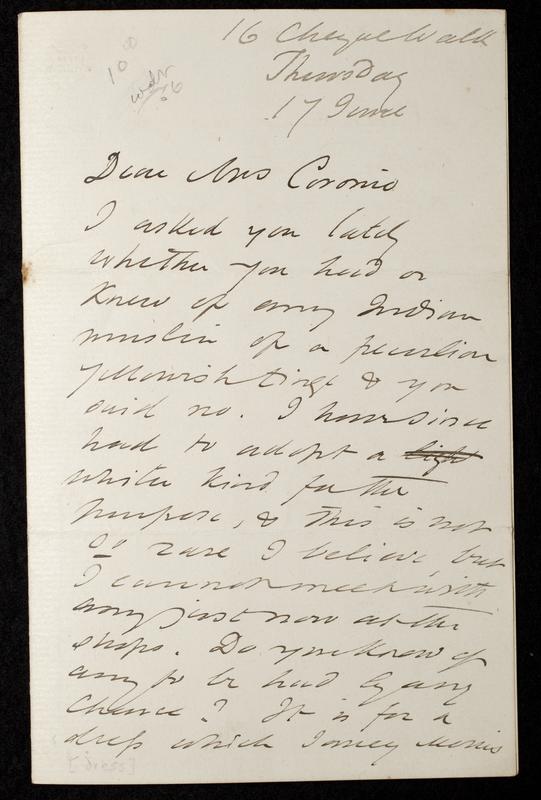 16 Cheyne Walk
Thursday
17 June
Dear Mrs Coronio
I asked you lately
whether you had or
knew of any Indian
muslin of a peculiar
yellowish tinge & you
said no. I have since
had to adopt a light
whiter kind for the
purpose, & this is not
so rare I believe, but
I cannot meet with
any just now at the
shops. Do you know of
any to be had by any
chance? It is for a
dress which Janey Morris
[dress]